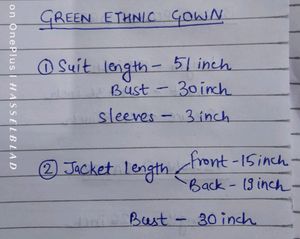 GREEN ETHNIC GOWN
① Suit length - 51 inch
Bust - 30 inch
sleeves - 3 inch
② Jacket length front - 15 inch
Back - 19 inch
Bust - 30 inch
on OnePlus | HASSELBLAD